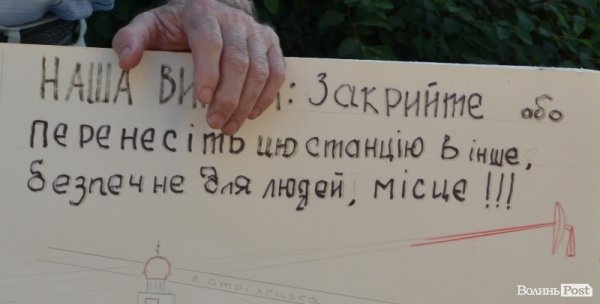 НАША : Закрийте або
перенесіть цю станцію в інше,
безпечне для людей, місце !!!
в стрілецька
ВолиньPost